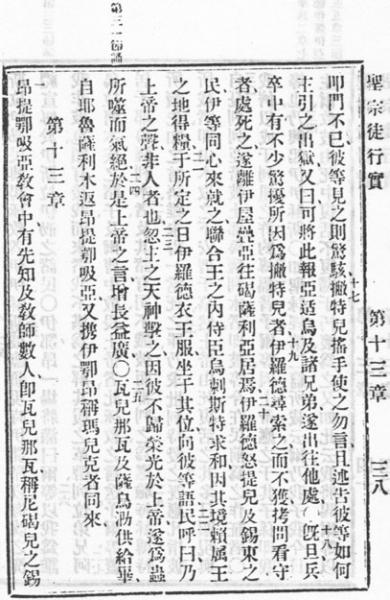 聖宗徒行實 第十三章 三八
叩門不已彼等見之則驚駭撇特兒搖手使之勿言且述告彼等如何
十七
主引之出獄又曰可將此報亞适烏及諸兄弟遂出往他處〇旣旦兵
十八
卒中有不少驚擾所因爲撇特兒者伊羅德尋索之而不獲拷問看守
十九
者處死之遂離伊屋疊亞往碣薩利亞居焉伊羅德怒提兒及錫東之
二十
民伊等同心來就之聯合王之內侍臣烏剌斯特求和因其境賴属王
之地得糧于所定之日伊羅德衣王服坐于其位向彼等語民呼曰乃
二一 二二
上帝之聲非人者也忽主之天神擊之因彼不歸榮光於上帝遂爲蟲
二三
所噬而氣絕於是上帝之言增長益廣〇瓦兒那瓦及薩烏泐供給畢
二四 二五
自耶魯薩利木返昂提鄂吸亞又携伊鄂昂稱瑪兒克者同來
第十三章
昂提鄂吸亞敎會中有先知及敎師數人卽瓦兒那瓦稱尼碣兒之錫
第三一節誦